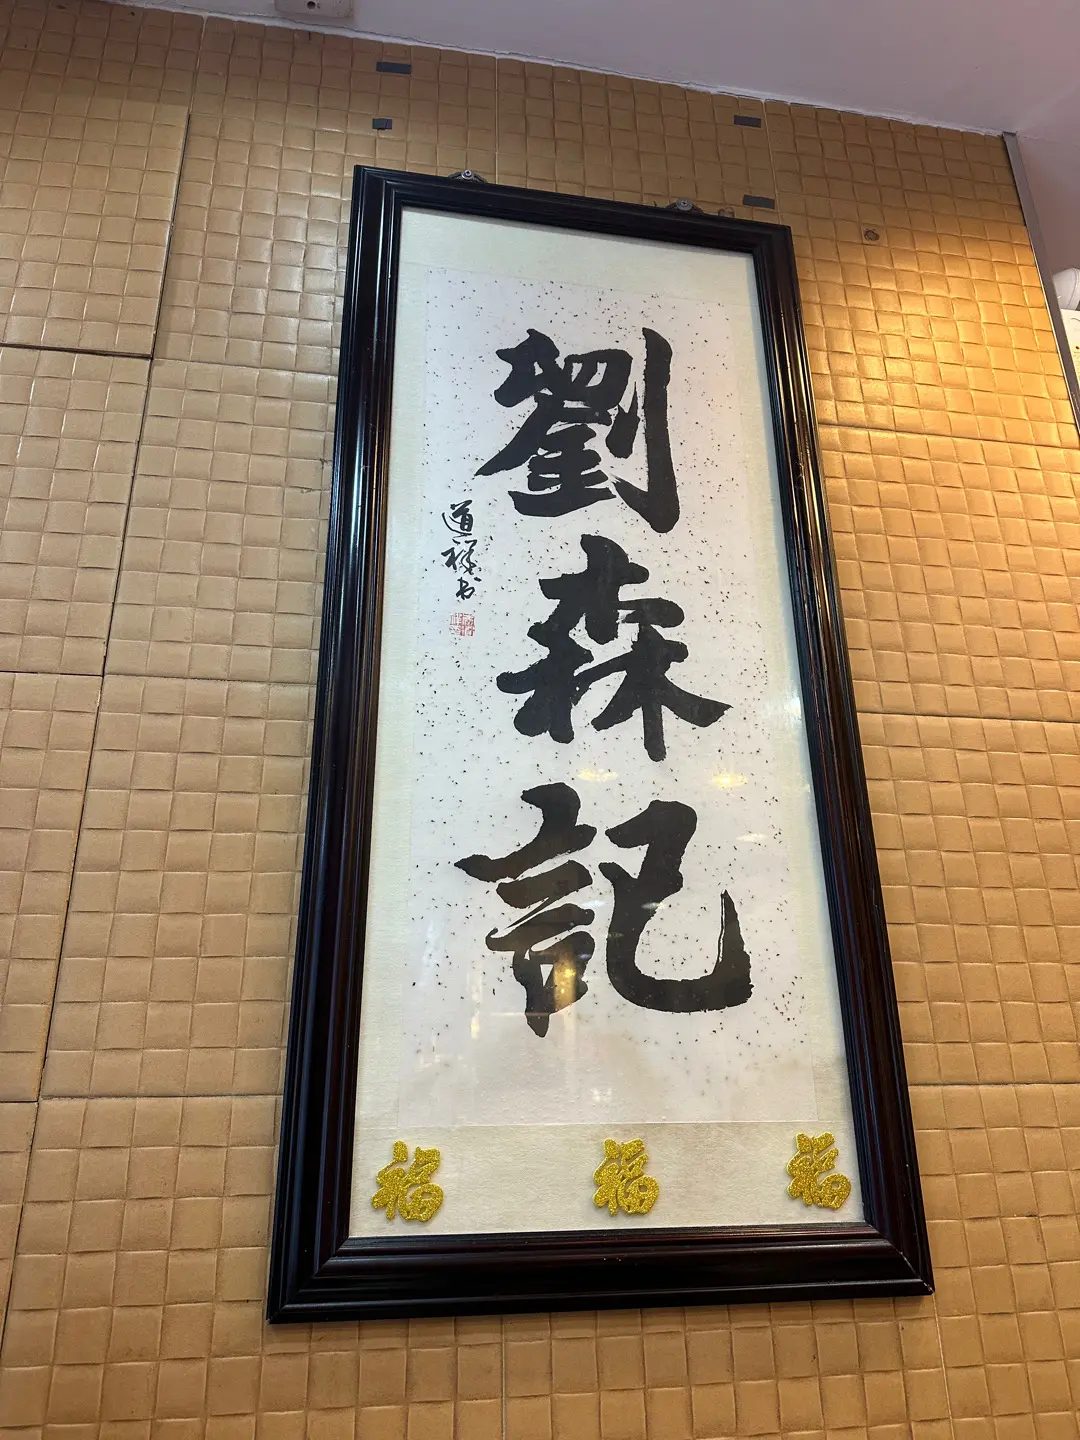 劉森記
道祥书
福 福 福